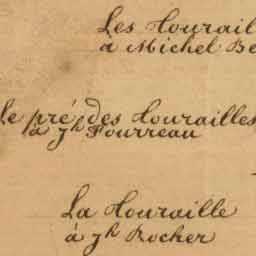 Les Tourail
à Michel Be
le pré des Tourailles
à Jh Fourreau
La Touraille
à Jh Rocher